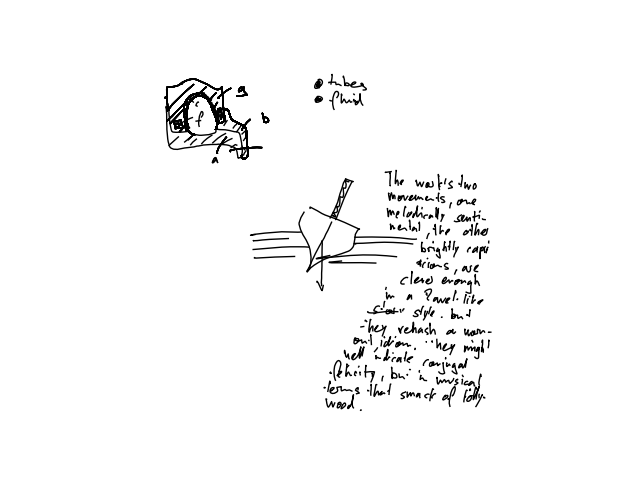 g
b
f
a
• tubes
• fluid
The work's two
movements, one
melodically senti-
mental, the other
brightly capri
cious, are
clever enough
in a Ravel-like
style. but
they rehash a worn-
out idiom. They might
well indicate conjugal
felicity, but in musical
terms that smack of Holly-
wood.